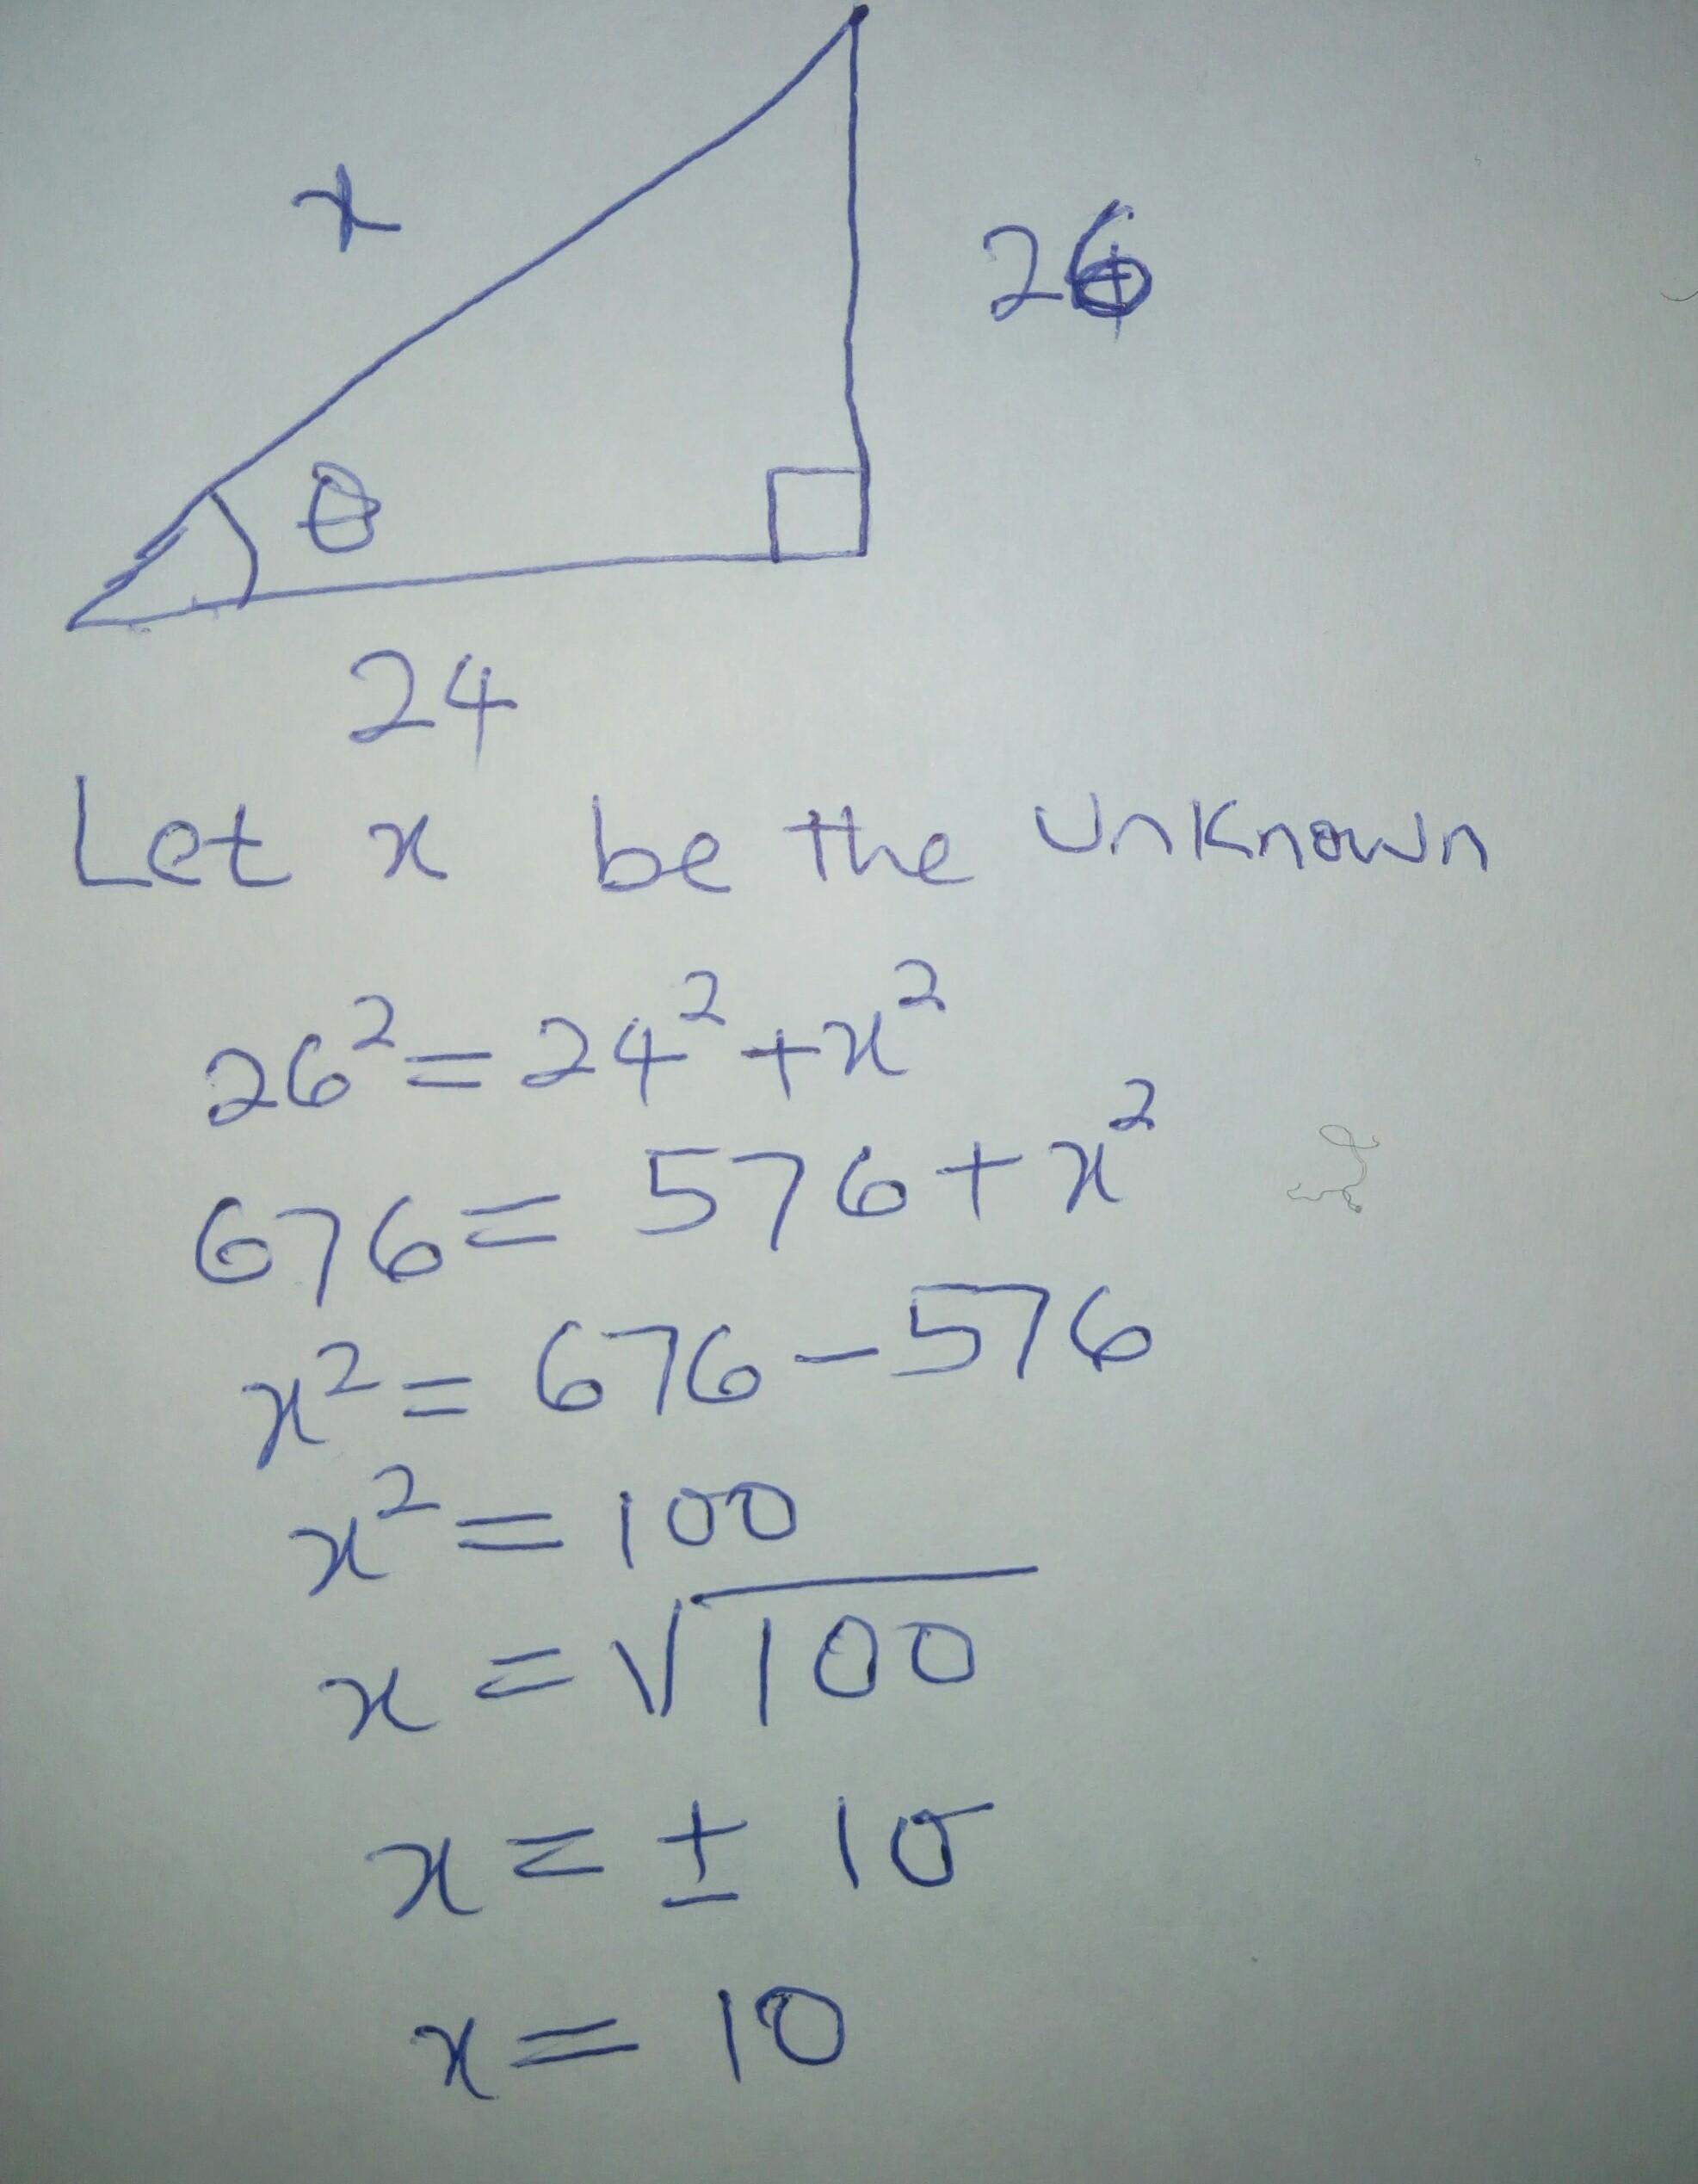 x
26
θ
24
Let x be the unknown
26² = 24² + x²
676 = 576 + x²
x² = 676 - 576
x² = 100
x = √100
x = ± 10
x = 10